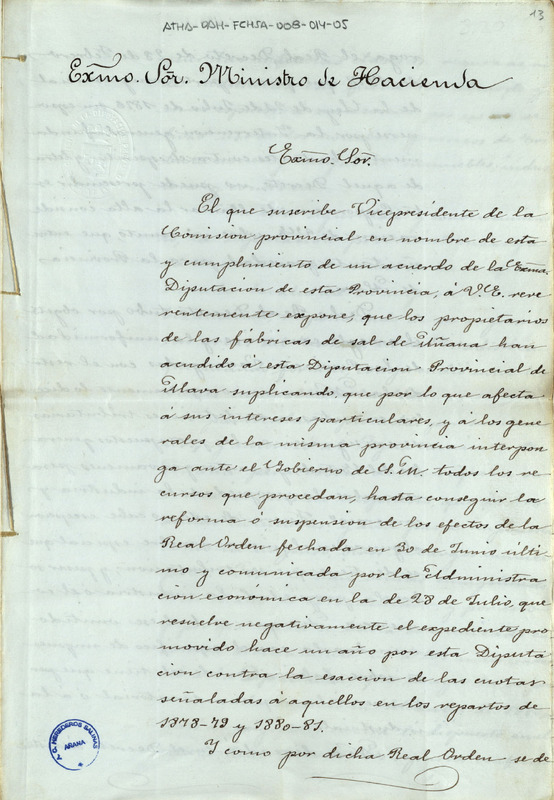 ATHA-DAH-FCHSA-008-014-05
13
Exc̃mo. Sor. Ministro de Hacienda
Exc̃mo. Sor.
El que suscribe Vicepresidente de la
Comision provincial en nombre de esta
y cumplimiento de un acuerdo de la Exc̃ma.
Diputacion de esta Provincia, á V.E. reve
rentemente expone; que los propietarios
de las fábricas de sal de Añana han
acudido á esta Diputacion Provincial de
Alava suplicando, que por lo que afecta
á sus intereses particulares, y á los gene
rales de la misma provincia interpon
ga ante el Gobierno de S.M. todos los re
cursos que procedan, hasta conseguir la
reforma ó suspension de los efectos de la
Real Orden fechada en 30 de Junio últi
mo y comunicada por la Administra
cion económica en la de 28 de Julio, que
resuelve negativamente el expediente pro
movido hace un año por esta Diputa
cion contra la esaccion de las cuotas
señaladas á aquellos en los repartos de
1878-79 y 1880-81.
Y como por dicha Real Orden se de
HEREDEROS SALINAS
AÑANA